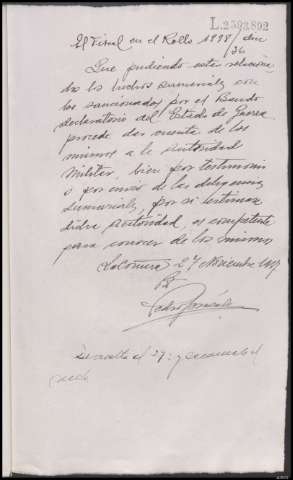 L.2593892
El Fiscal en el Rollo 1998/
36
Que pudiendo estar relaciona-
dos los hechos sumariales con
los sancionados por el Bando
declaratorio del Estado de Guerra
procede dar cuenta de los
mismos a la Autoridad
Militar, bien por testimonio
o por envio de las diligencias
sumariales, por si estimara
dicha autoridad, es competente
para conocer de los mismos
La Coruña 27 Noviembre
Pedro González
Devuelto el 29; y